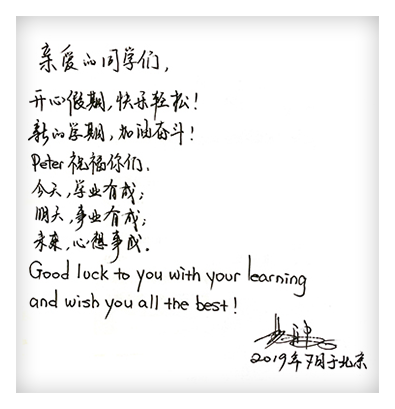 亲爱的同学们,
开心假期,快乐轻松!
新的学期,加油奋斗!
Peter 祝福你们.
今天,学业有成;
明天,事业有成;
未来,心想事成.
Good luck to you with your learning
and wish you all the best!
2019年7月于北京